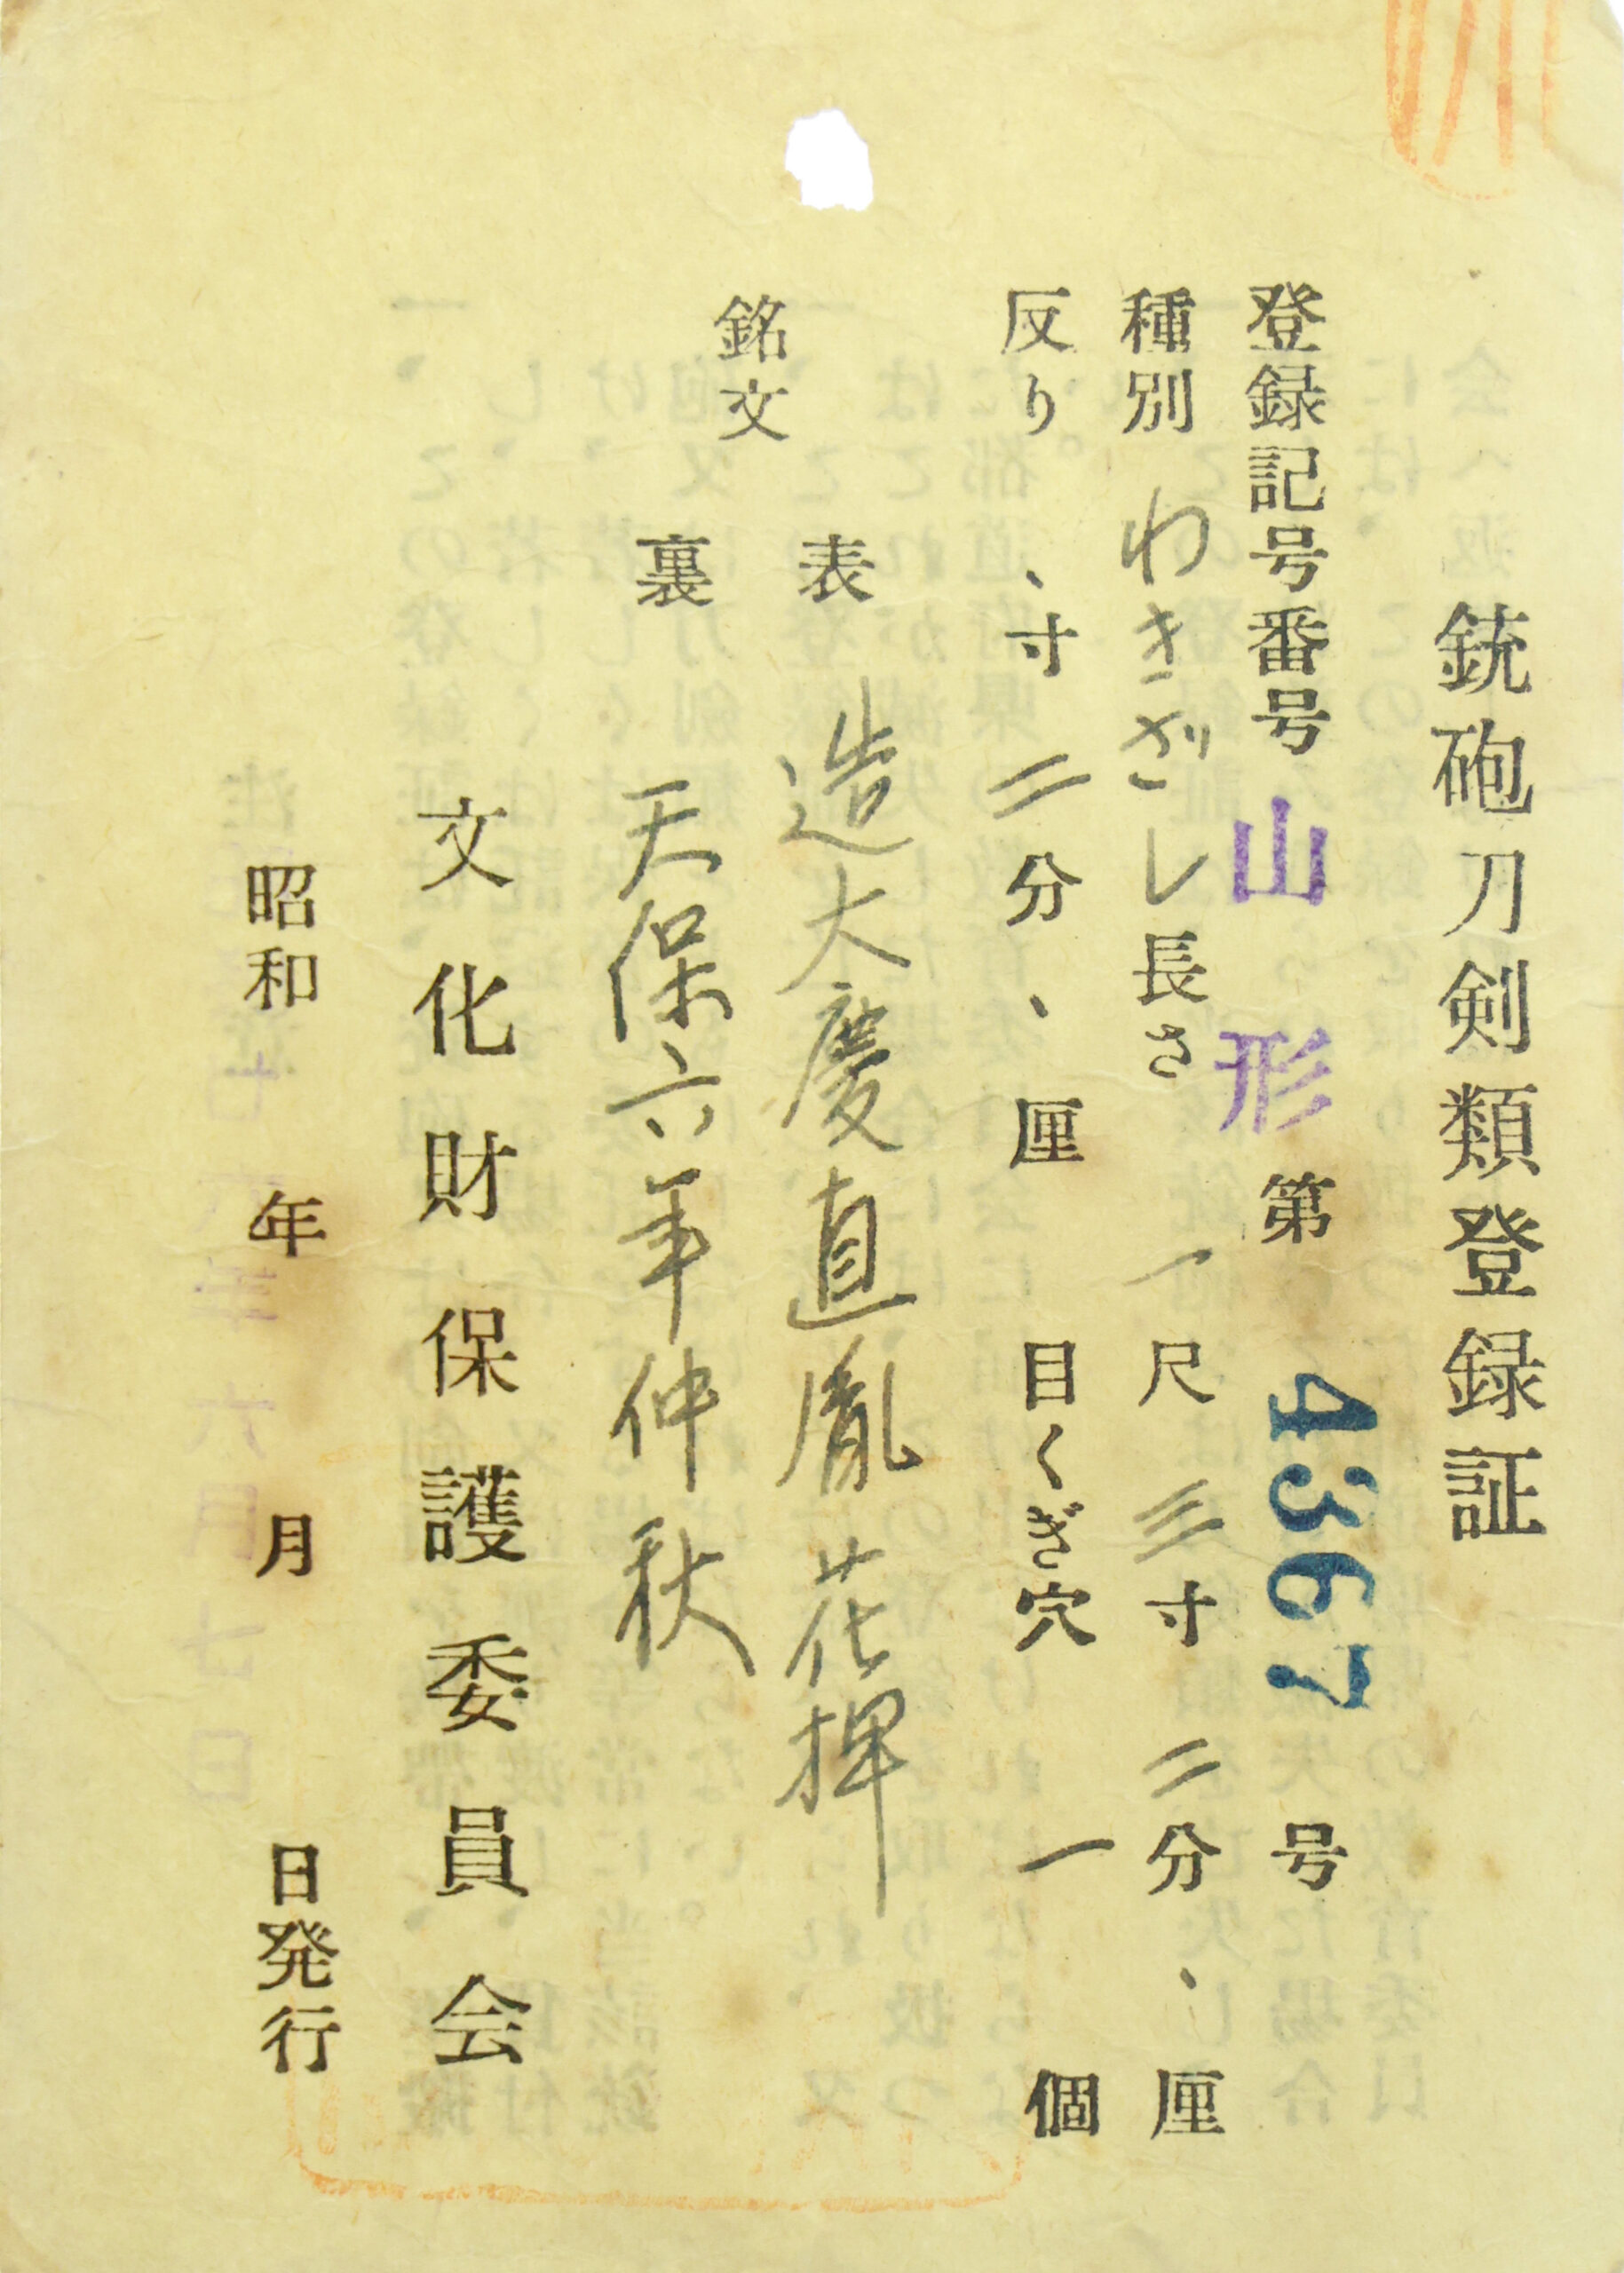 銃砲刀剣類登録証
登録記号番号 山形 第 4367 号
種別 わきざし 長さ 一尺 三寸 二分 、厘
反り 、寸 二分 、厘 目くぎ穴 一 個
銘文
表 造大慶直胤 花押
裏 天保六年仲秋
文化財保護委員会
昭和 年 月 日発行